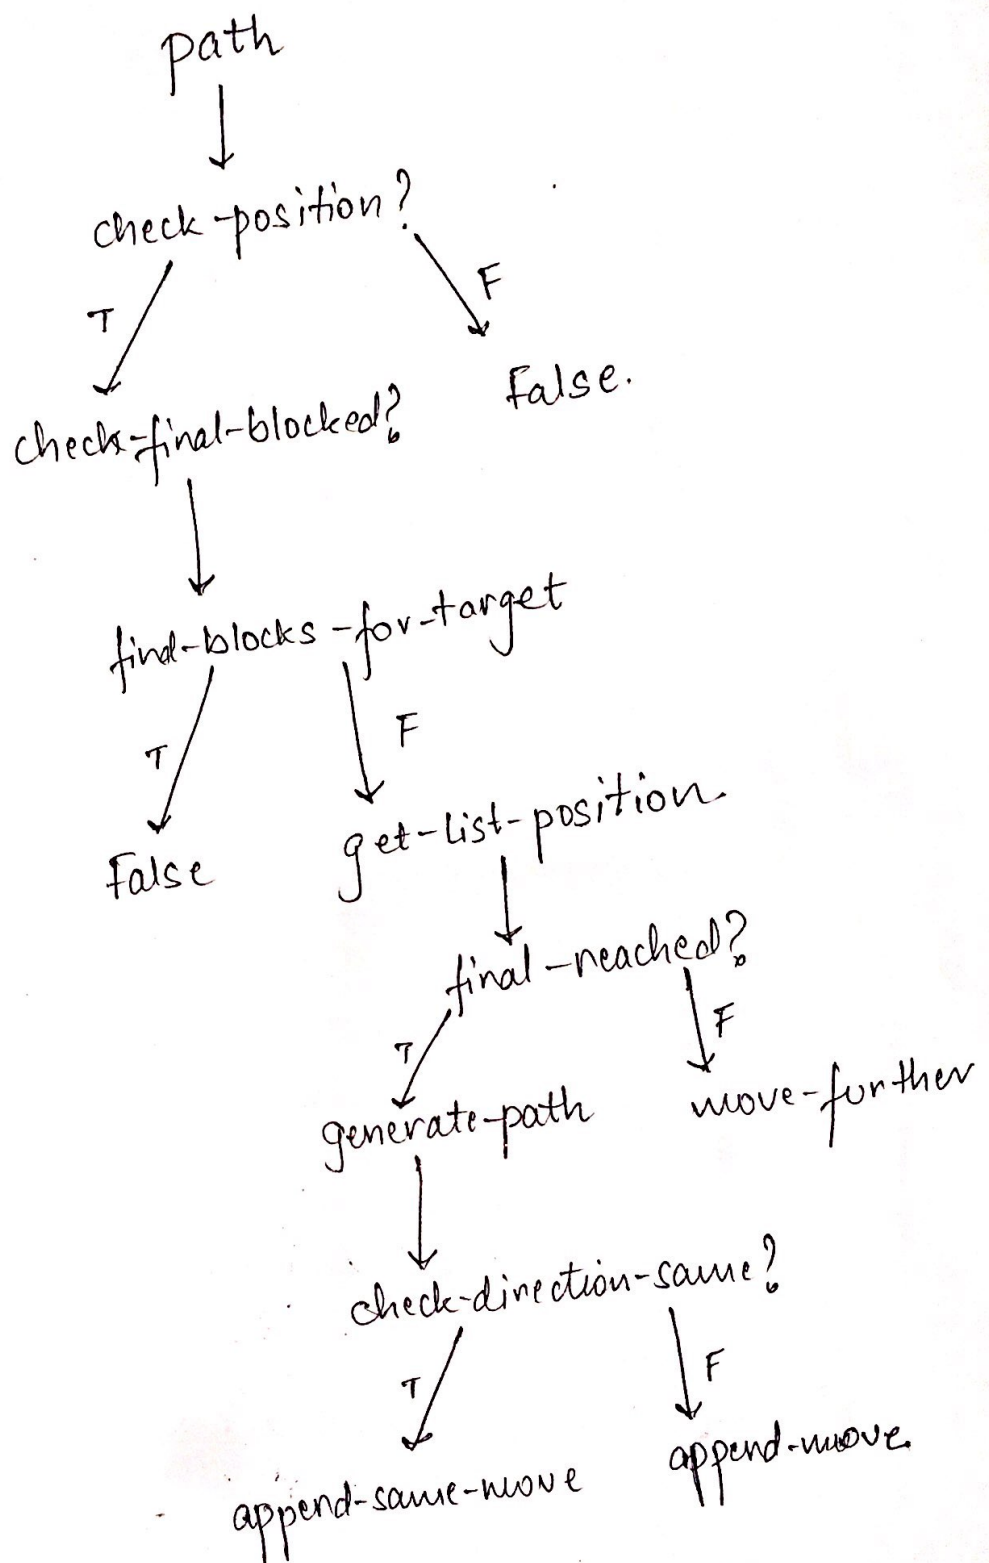 path
check-position?
T
F
False.
check-final-blocked?
find-blocks-for-target
T
F
False
get-list-position.
final-reached?
T
F
generate-path
move-further
check-direction-same?
T
F
append-same-move
append-move.